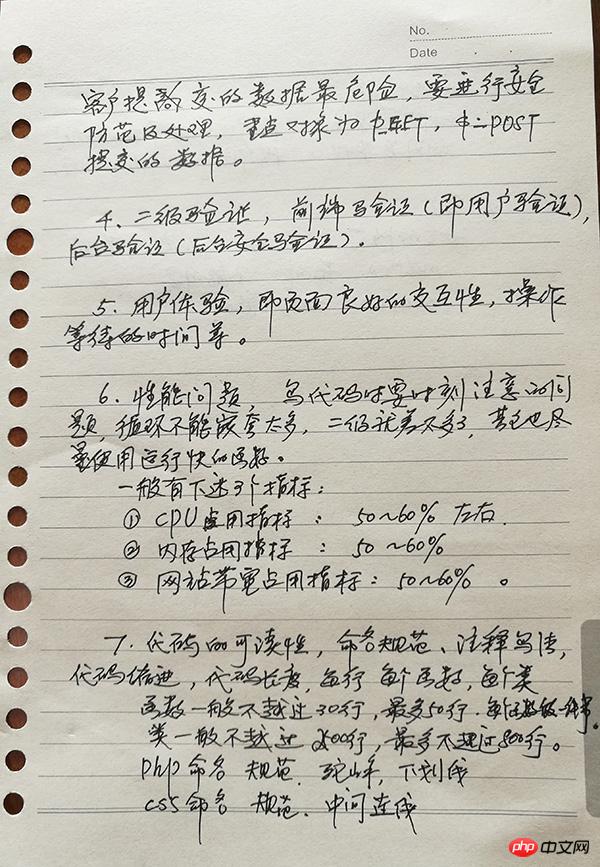 No.
Date
客户提交的数据最危险，要进行安全
防范及处理，重点对象为 GET，POST
提交的数据。
4、二级验证，前端验证（即用户验证），
后台验证（后台安全验证）.
5、用户体验，即页面良好的交互性，操作
等待的时间等。
6、性能问题，写代码时要时刻注意的问
题，循环不能嵌套太多，二级就差不多了，其它也尽
量使用运行快的函数。
一般有下述3个指标：
① CPU占用指标 : 50~60% 左右.
② 内存占用指标 : 50~60%
③ 网站带宽占用指标: 50~60% 。
7、代码的可读性，命名规范、注释写法，
代码缩进，代码长度，每行 每个函数，每个类
函数一般不超过30行，最多50行.
类一般不超过500行，最多不超过800行。
php命名 规范. 驼峰，下划线
css命名 规范. 中间连线
php 中文网